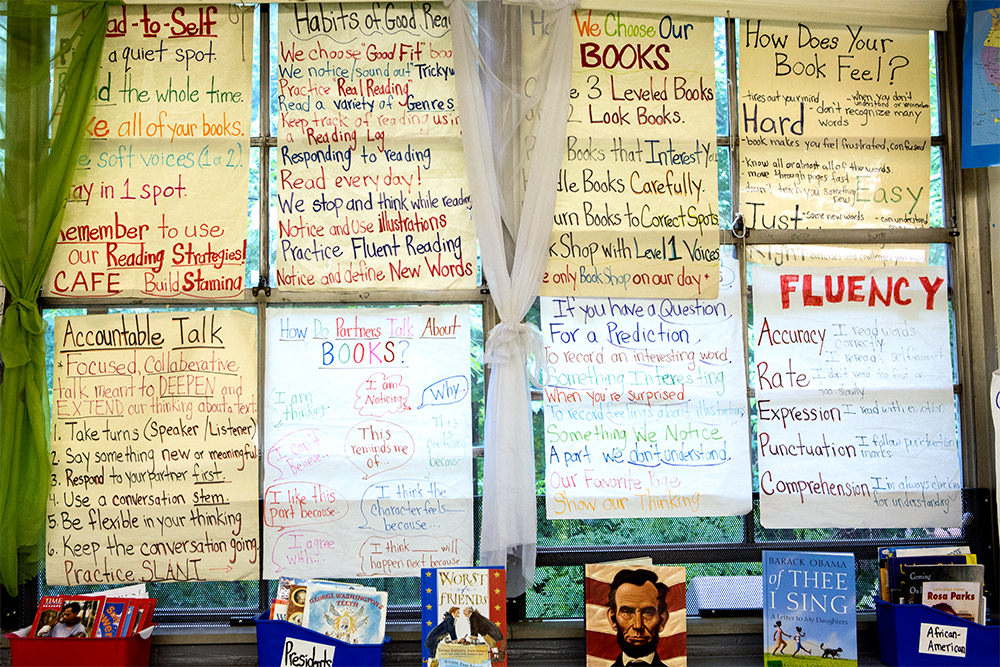 to-Self
a quiet spot.
the whole time.
all of your books.
soft voices (1 or 2).
in 1 spot.
Remember to use
our Reading Strategies!
CAFE Build Stamina
Habits of Good
We choose "Good Fit"
We notice/sound out "Tricky
Practice "Real Reading
Read a variety of Genres
Keep track of reading using
a Reading Log
Responding to reading
Read everyday!
We stop and think while reading
Notice and Use Illustrations
Practice Fluent Reading
Notice and define New Words
We Choose Our
BOOKS
3 Leveled Books
Look Books.
Books that Interest You
Books Carefully.
Books to Correct Spots
Shop with Level 1 Voices
only Book Shop on our day *
How Does Your
Book Feel?
-tires out your mind -when you don't
understand or remember
Hard -don't recognize many
words
-book makes you feel frustrated, confused
-Know all or almost all of the words
-move through pages fast
-doesn't teach you something
new Easy
Just -Some new words -can understand
Right
Accountable Talk
*Focused, Collaborative
talk meant to DEEPEN and
EXTEND our thinking about a text.
1. Take turns (Speaker/Listener)
2. Say something new or meaningful
3. Respond to your partner first.
4. Use a conversation stem.
5. Be flexible in your thinking
6. Keep the conversation going
Practice SLANT
How Do Partners Talk About
BOOKS?
I am
thinking...
I am
Noticing...
Why...
I can't
believe...
This
reminds me
of...
because...
I like this
part because...
I think the
character feels
because...
I agree
with...
I think ___ will
happen next because...
If you have a Question,
For a Prediction,
To record an interesting word.
Something Interesting
When you're surprised.
To record feelings about illustrations
Something We Notice
A part we don't understand.
Our Favorite Page
Show our Thinking
FLUENCY
Accuracy I read words
correctly.
Rate
Expression I read with emotion
Punctuation I follow punctuation
marks.
Comprehension I'm always checking
for understanding
TIME
Presidents
GEORGE WASHINGTON'S
TEETH
WORST of
FRIENDS
BARACK OBAMA
of THEE
I SING
A Letter to My Daughters
Coming
Rosa Parks
African-
American